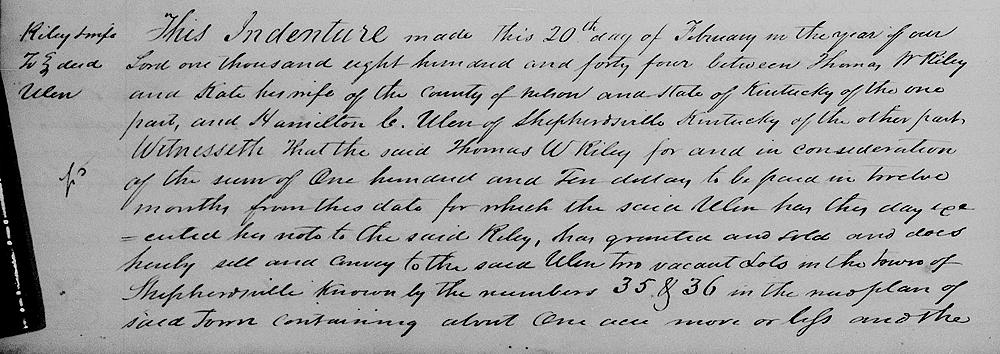 Riley & wife
To } deed
Ulen
This Indenture made this 20th day of February in the year of our
Lord one thousand eight hundred and forty four between Thomas W Riley
and Kate his wife of the County of Nelson and State of Kentucky of the one
part, and Hamilton C. Ulen of Shepherdsville Kentucky of the other part,
Witnesseth That the said Thomas W Riley for and in consideration
of the sum of One hundred and Ten dollars to be paid in twelve
months from this date for which the said Ulen has this day exe
=cuted his note to the said Riley, has granted and sold and does
hereby sell and convey to the said Ulen two vacant Lots in the town of
Shepherdsville known by the numbers 35 & 36 in the new plan of
said Town containing about One acre more or less and the